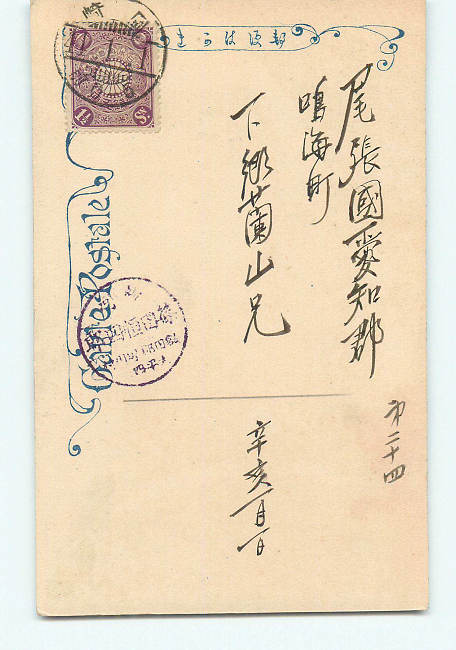 郵便はかき
Carte Postale
尾張國愛知郡
鳴海町
下郷蘭山兄
辛亥一月一日
第二十四
1½ Sn